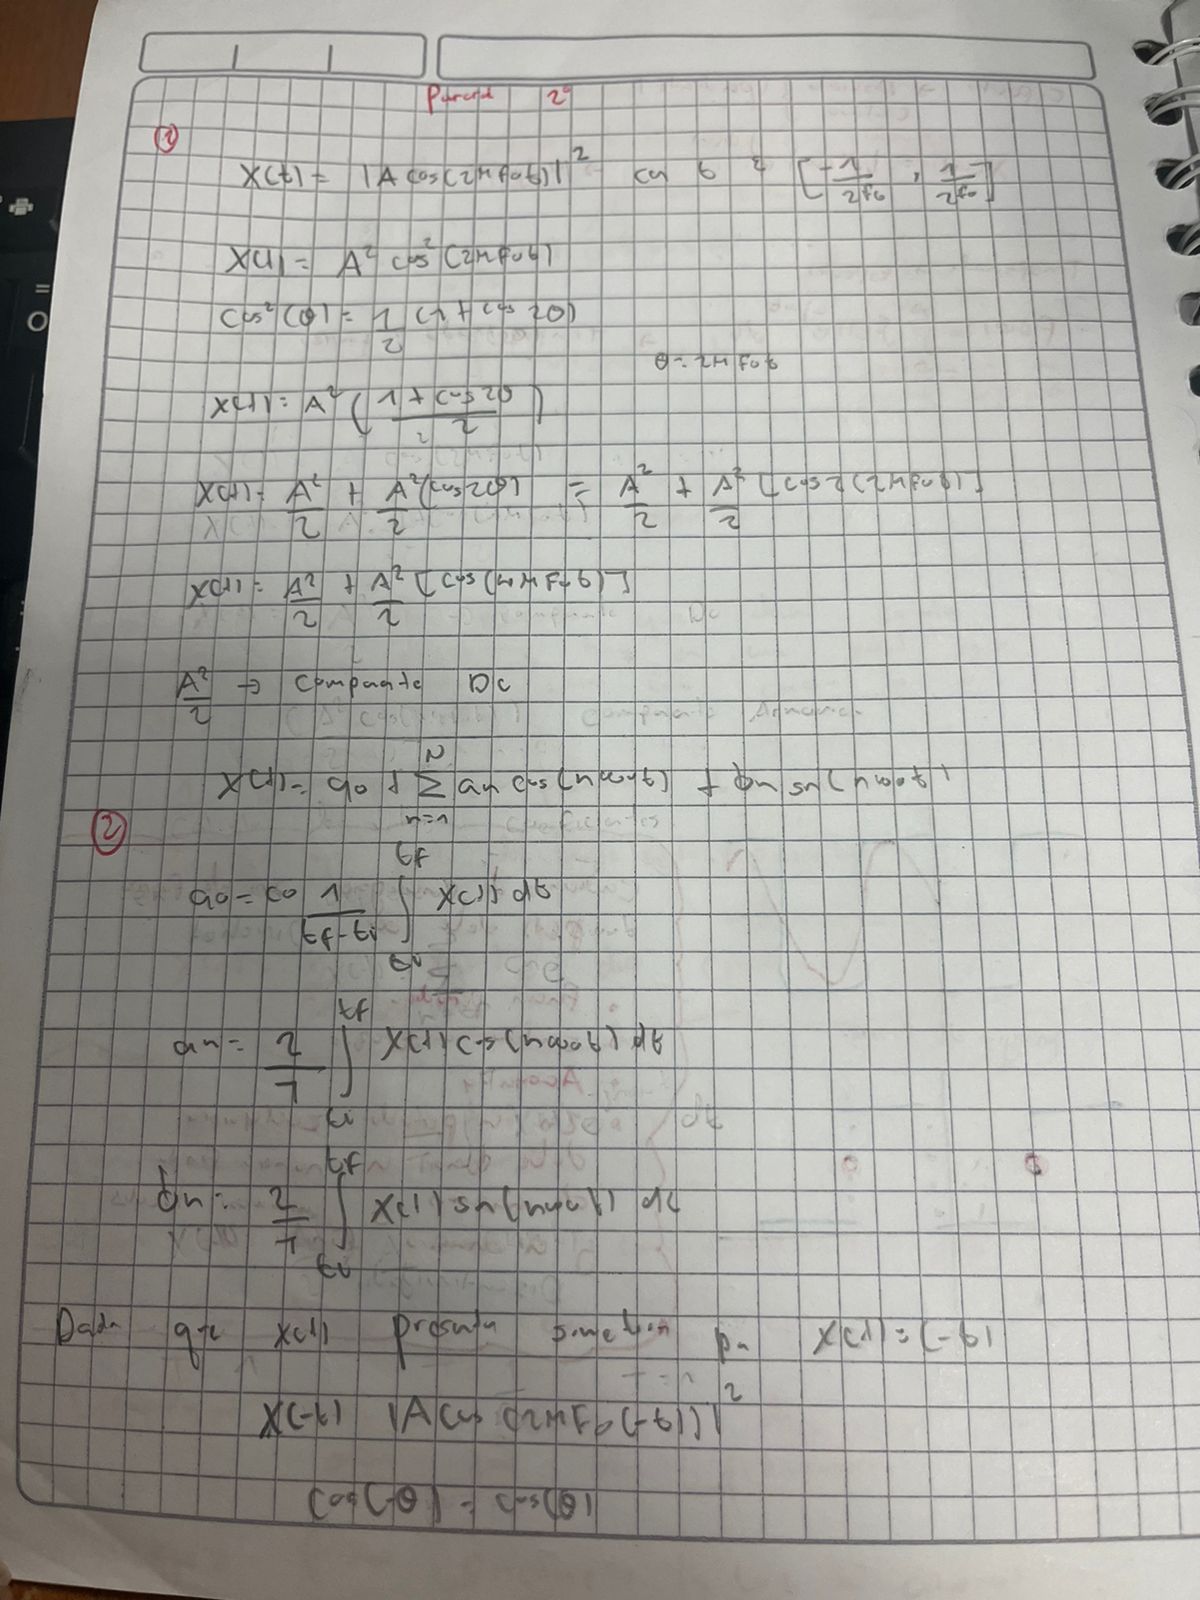 Parcial 2°
①
X(t) = |A cos(2πf₀t)|² en t ε [-1/2f₀, 1/2f₀]
X(t) = A² cos²(2πf₀t)
cos²(θ) = 1/2 (1 + cos 2θ)
θ = 2πf₀t
X(t) = A² (1 + cos 2θ / 2)
X(t) = A²/2 + A²/2 (cos 2θ) = A²/2 + A²/2 [cos 2(2πf₀t)]
X(t) = A²/2 + A²/2 [cos(4πf₀t)]
A²/2 → Componente DC
X(t) = a₀ + Σ_{n=1}^{N} an cos(nω₀t) + bn sn(nω₀t)
②
a₀ = c₀ 1/(tf-ti) ∫_{ti}^{tf} X(t) dt
an = 2/T ∫_{ti}^{tf} X(t) cos(nω₀t) dt
bn = 2/T ∫_{ti}^{tf} X(t) sn(nω₀t) dt
Dado que X(t) presenta simetria par X(t) = (-t)
X(-t) |A cos(2πf₀(-t))|²
cos(-θ) = cos(θ)